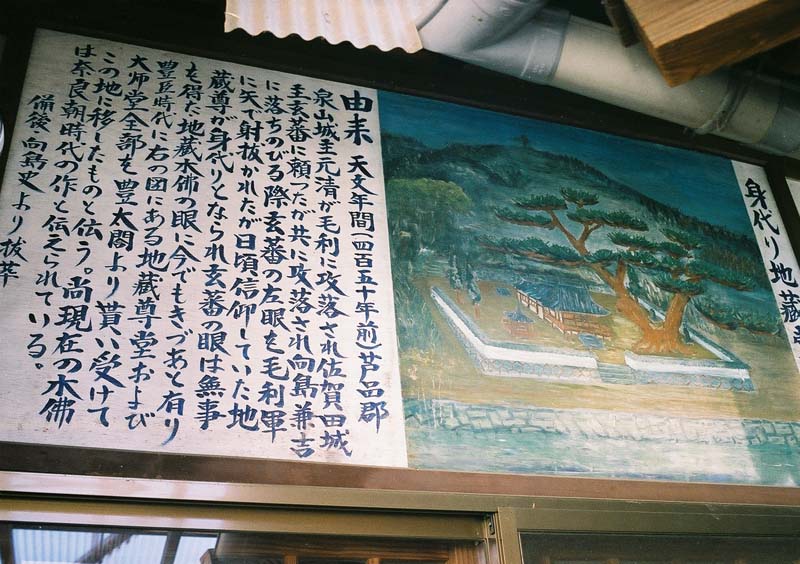 身代り地蔵
由来 天文年間(四百五十年前)芦品郡
泉山城主元清が毛利に攻落され佐賀田城
主玄蕃に頼ったが共に攻落され向島兼吉
に落ちのびる際玄蕃の左眼を毛利軍
に矢で射抜かれたが日頃信仰していた地
蔵尊が身代りとなられ玄蕃の眼は無事
を得た地蔵木佛の眼に今でもきづあと有り
豊臣時代に右の図にある地蔵尊堂および
大师堂全部を豊太閤より貰い受けて
この地に移したものと伝う。尚現在の木佛
は奈良朝時代の作と伝えられている。
備後・向島史より抜萃